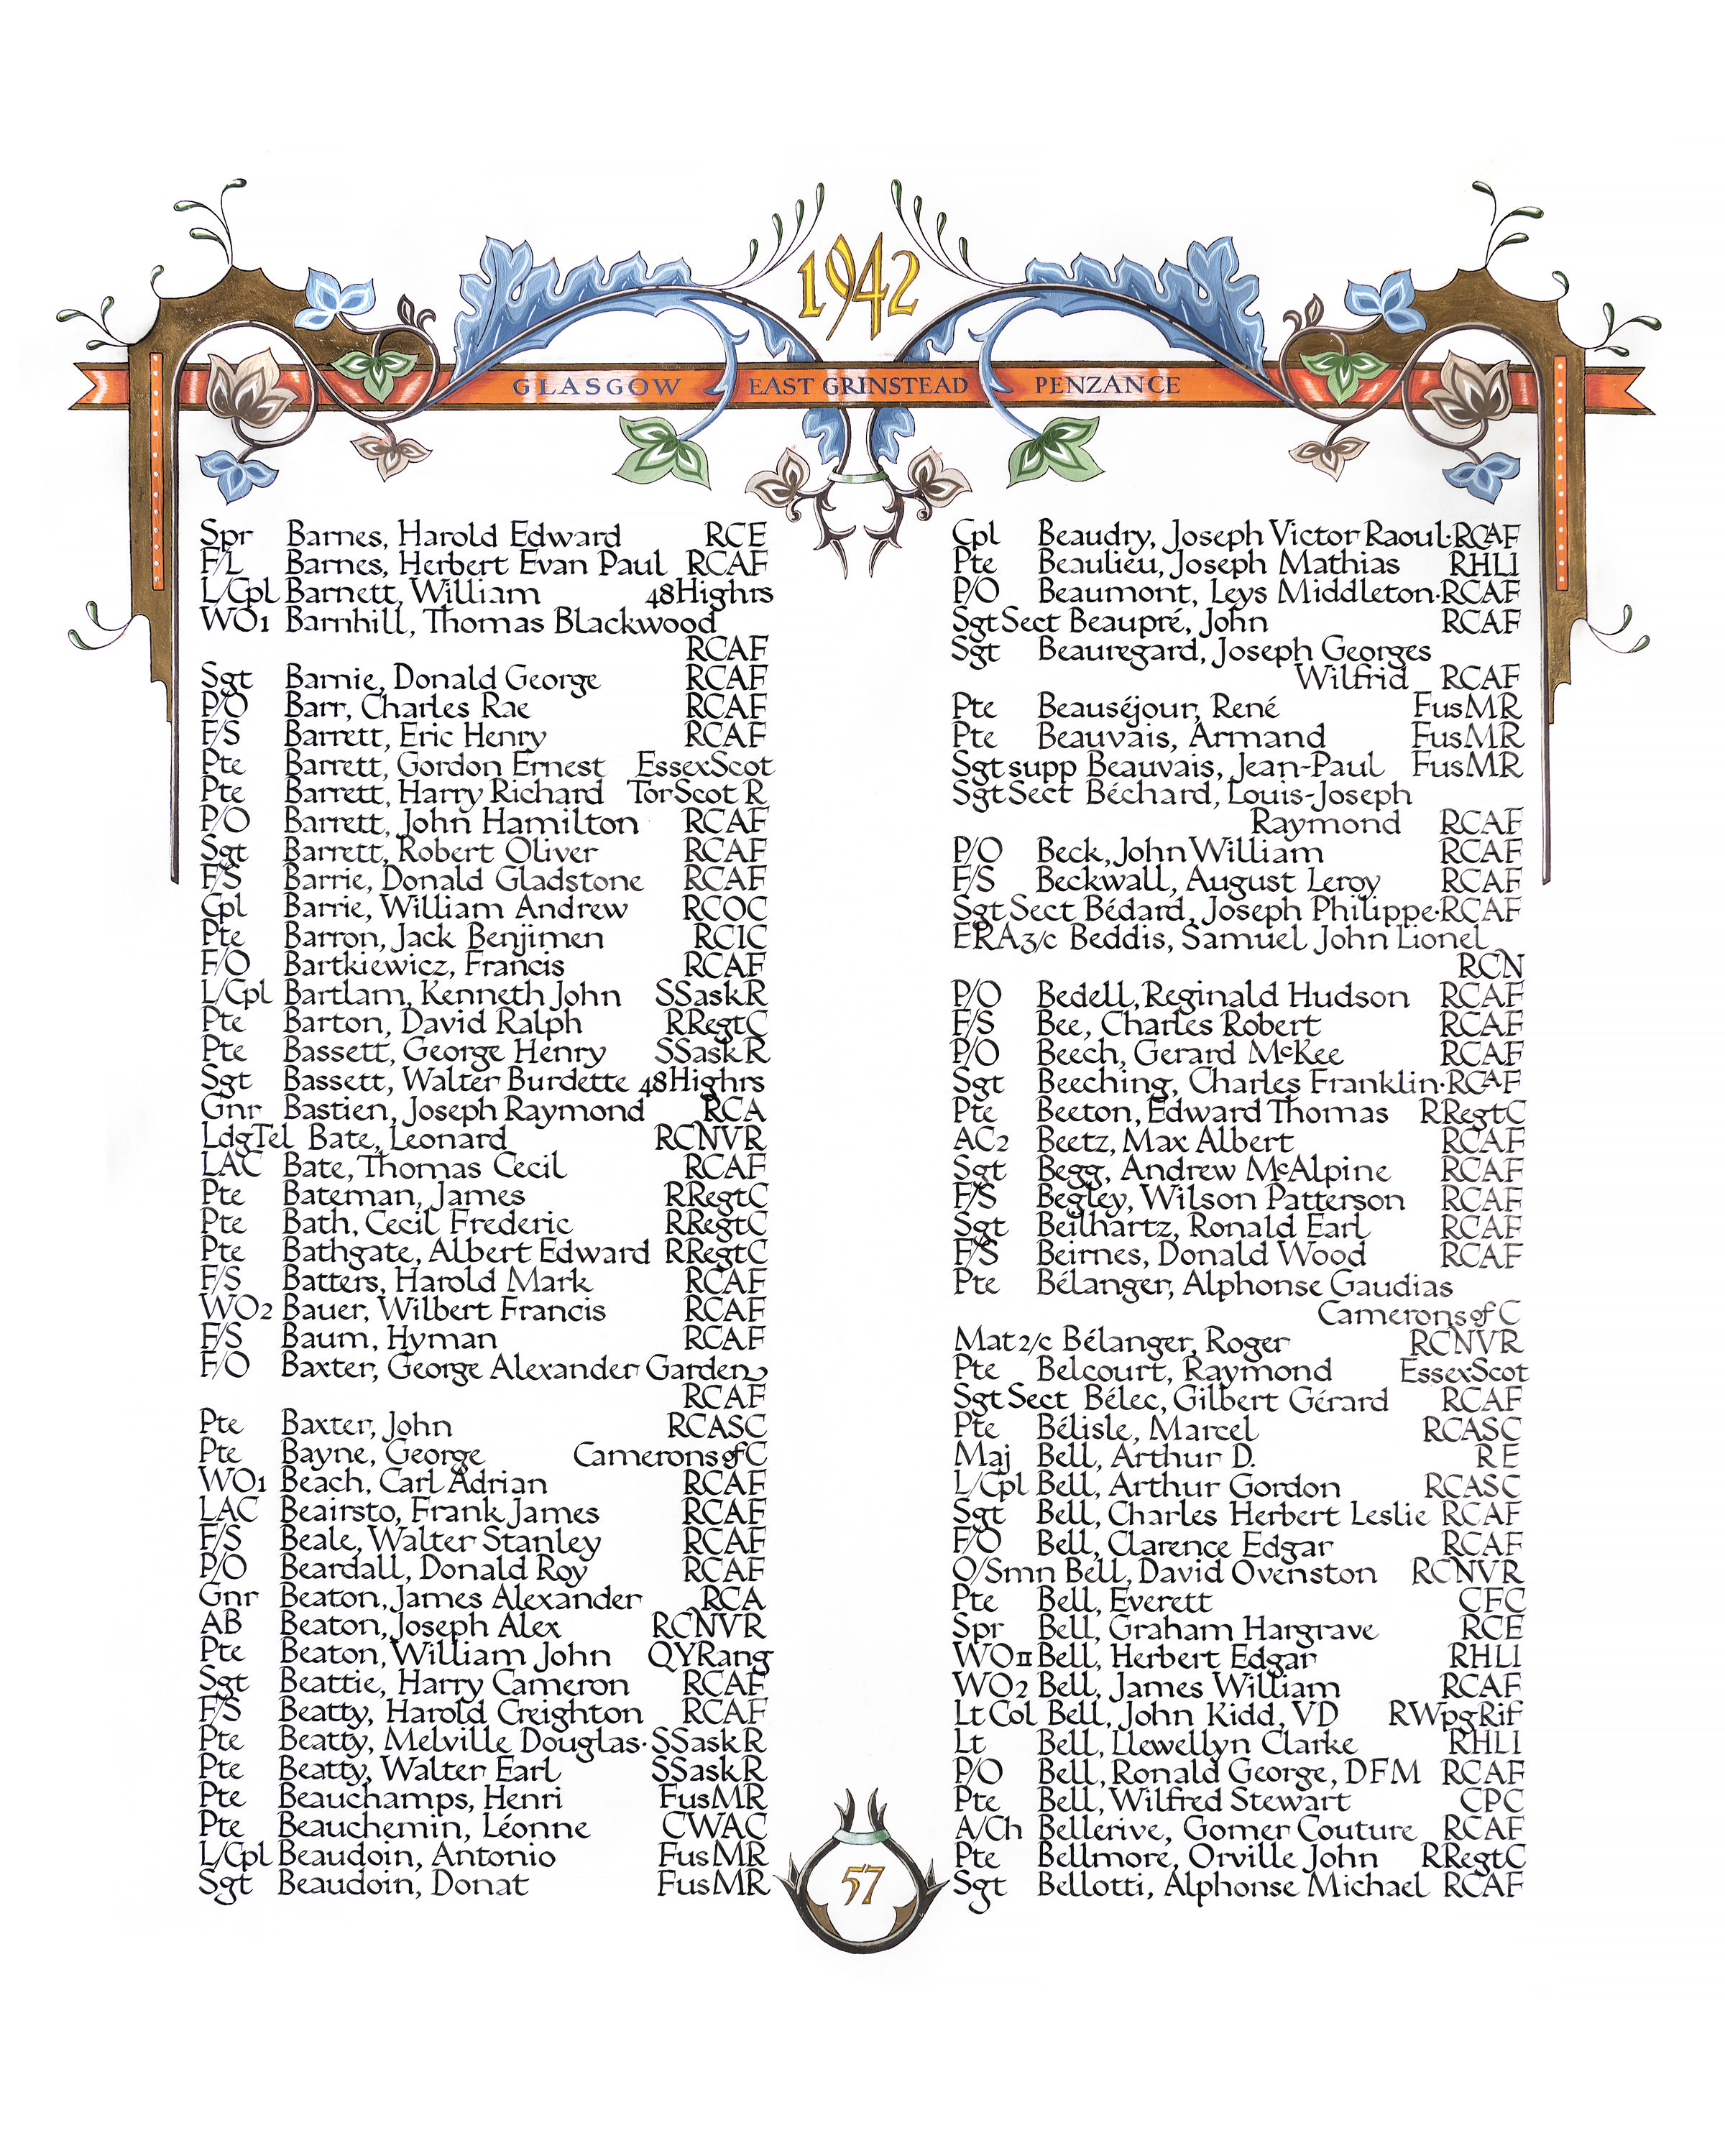 1942
GLASGOW EAST GRINSTEAD PENZANCE
Spr Barnes, Harold Edward RCE
F/L Barnes, Herbert Evan Paul RCAF
L/Cpl Barnett, William 48Highrs
WO1 Barnhill, Thomas Blackwood
RCAF
Sgt Barnie, Donald George RCAF
P/O Barr, Charles Rae RCAF
F/S Barrett, Eric Henry RCAF
Pte Barrett, Gordon Ernest EssexScot
Pte Barrett, Harry Richard TorScot R
P/O Barrett, John Hamilton RCAF
Sgt Barrett, Robert Oliver RCAF
F/S Barrie, Donald Gladstone RCAF
Cpl Barrie, William Andrew RCOC
Pte Barron, Jack Benjimen RCIC
F/O Bartkiewicz, Francis RCAF
L/Cpl Bartlam, Kenneth John SSaskR
Pte Barton, David Ralph RRegtC
Pte Bassett, George Henry SSaskR
Sgt Bassett, Walter Burdette 48Highrs
Gnr Bastien, Joseph Raymond RCA
LdgTel Bate, Leonard RCNVR
LAC Bate, Thomas Cecil RCAF
Pte Bateman, James RRegtC
Pte Bath, Cecil Frederic RRegtC
Pte Bathgate, Albert Edward RRegtC
F/S Batters, Harold Mark RCAF
WO2 Bauer, Wilbert Francis RCAF
F/S Baum, Hyman RCAF
F/O Baxter, George Alexander Garden
RCAF
Pte Baxter, John RCASC
Pte Bayne, George Camerons of C
WO1 Beach, Carl Adrian RCAF
LAC Beairsto, Frank James RCAF
F/S Beale, Walter Stanley RCAF
P/O Beardall, Donald Roy RCAF
Gnr Beaton, James Alexander RCA
AB Beaton, Joseph Alex RCNVR
Pte Beaton, William John QYRang
Sgt Beattie, Harry Cameron RCAF
F/S Beatty, Harold Creighton RCAF
Pte Beatty, Melville Douglas·SSaskR
Pte Beatty, Walter Earl SSaskR
Pte Beauchamps, Henri FusMR
Pte Beauchemin, Léonne CWAC
L/Cpl Beaudoin, Antonio FusMR
Sgt Beaudoin, Donat FusMR
Cpl Beaudry, Joseph Victor Raoul·RCAF
Pte Beaulieu, Joseph Mathias RHLI
P/O Beaumont, Leys Middleton·RCAF
SgtSect Beaupré, John RCAF
Sgt Beauregard, Joseph Georges
Wilfrid RCAF
Pte Beauséjour, René FusMR
Pte Beauvais, Armand FusMR
Sgtsupp Beauvais, Jean-Paul FusMR
SgtSect Béchard, Louis-Joseph
Raymond RCAF
P/O Beck, John William RCAF
F/S Beckwall, August Leroy RCAF
SgtSect Bédard, Joseph Philippe·RCAF
ERA3/c Beddis, Samuel John Lionel
RCN
P/O Bedell, Reginald Hudson RCAF
F/S Bee, Charles Robert RCAF
P/O Beech, Gerard McKee RCAF
Sgt Beeching, Charles Franklin·RCAF
Pte Beeton, Edward Thomas RRegtC
AC2 Beetz, Max Albert RCAF
Sgt Begg, Andrew McAlpine RCAF
F/S Begley, Wilson Patterson RCAF
Sgt Beilhartz, Ronald Earl RCAF
F/S Beirnes, Donald Wood RCAF
Pte Bélanger, Alphonse Gaudias
Camerons of C
Mat2/c Bélanger, Roger RCNVR
Pte Belcourt, Raymond EssexScot
SgtSect Bélec, Gilbert Gérard RCAF
Pte Bélisle, Marcel RCASC
Maj Bell, Arthur D. RE
L/Cpl Bell, Arthur Gordon RCASC
Sgt Bell, Charles Herbert Leslie RCAF
F/O Bell, Clarence Edgar RCAF
O/Smn Bell, David Ovenston RCNVR
Pte Bell, Everett CFC
Spr Bell, Graham Hargrave RCE
WOII Bell, Herbert Edgar RHLI
WO2 Bell, James William RCAF
Lt Col Bell, John Kidd, VD RWpgRif
Lt Bell, Llewellyn Clarke RHLI
P/O Bell, Ronald George, DFM RCAF
Pte Bell, Wilfred Stewart CPC
A/Ch Bellerive, Gomer Couture RCAF
Pte Bellmore, Orville John RRegtC
Sgt Bellotti, Alphonse Michael RCAF
57